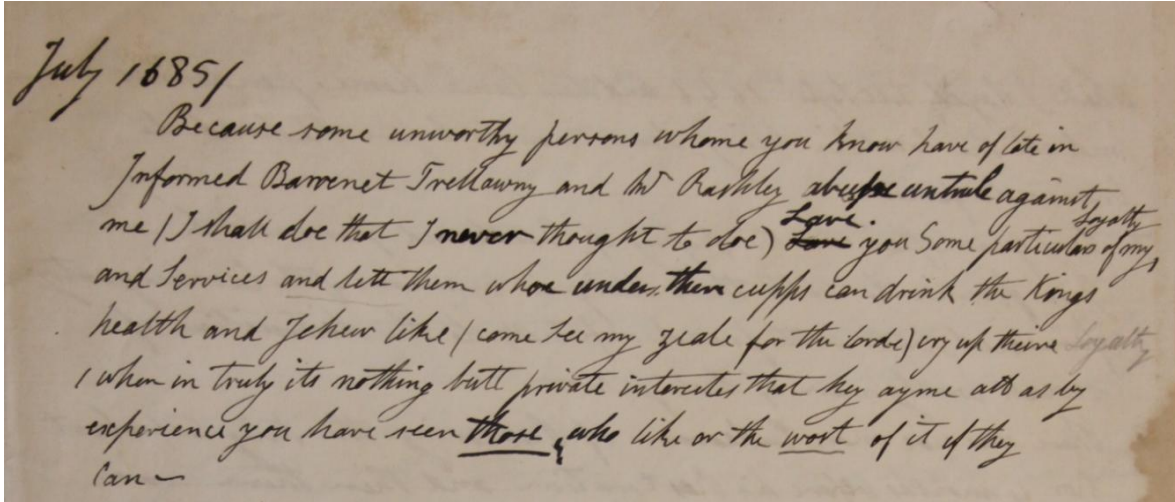 July 1685/
Because some unworthy persons whome you know have of late in
Informed Barronet Trellawny and Mr Rashley untrule against
me (I shall doe that I never thought to doe) Lave. Lave you Some particulars of my Loyalty
and Services and lett them whoe under there cupps can drink the Kings
health and Jehew like (come See my zeale for the Lorde) cry up theire Loyalty
(when in truly its nothing butt private interestes that hey ayme att as by
experience you have seen those, who like or the wort of it if they
Can —